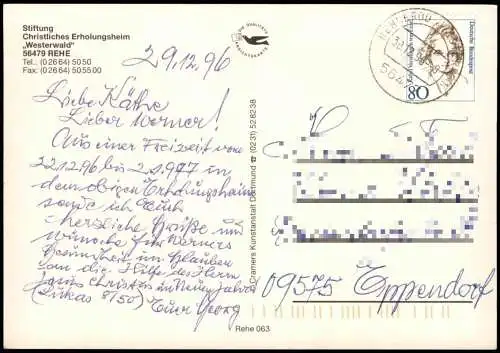 Stiftung
Christliches Erholungsheim
„Westerwald"
56479 REHE
Tel.: (0 26 64) 50 50
Fax: (0 26 64) 50 55 00
29.12.96
Liebe Käthe
Lieber Werner!
Aus einer Freizeit vom
22.12.96 bis 2.1.997 in
dem obigen Erholungsheim
sende ich Euch
herzliche Grüße und
wünsche für Werners
Krankheit im Glauben
an die Hilfe des Herrn
Jesus Christus im neuen Jahr
(Lukas 8/50) Euer Georg
Cramers Kunstanstalt Dortmund ☎ (02 31) 52 82 38
Rehe 063
Deutsche Bundespost
80
09575 Eppendorf